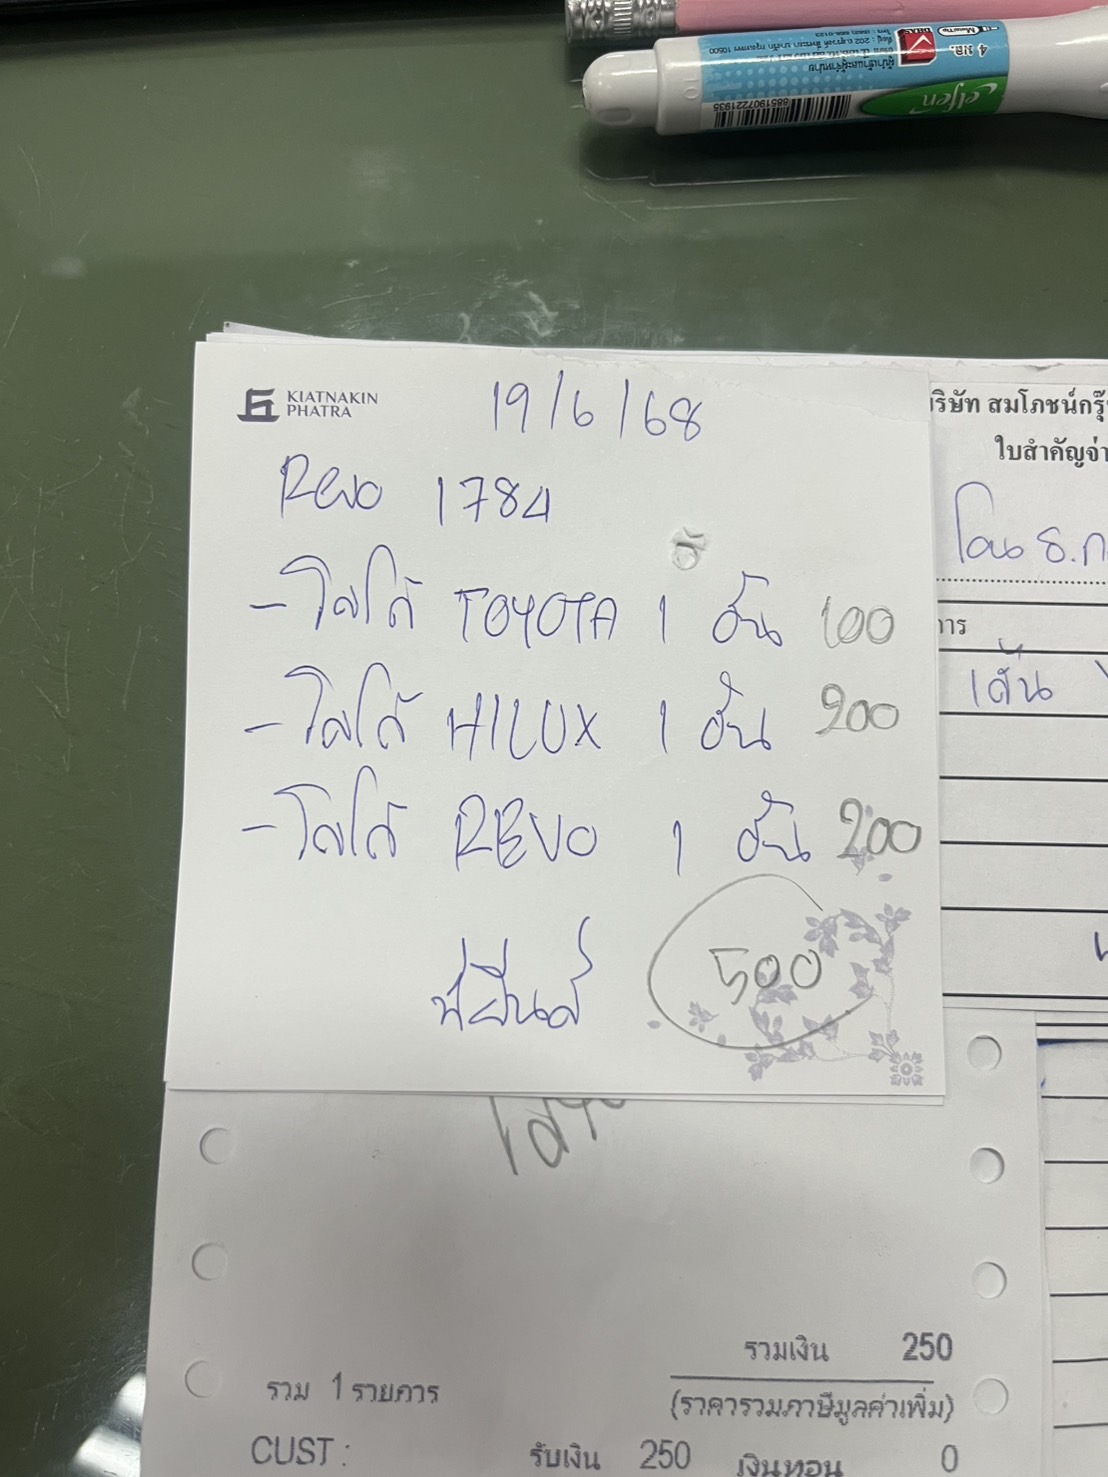 KIATNAKIN
PHATRA
19/6/68
Revo 1784
- โลโก้ TOYOTA 1 อัน 100
- โลโก้ HILUX 1 อัน 200
- โลโก้ REVO 1 อัน 200
500
พี่ยีนส์
ริษัท สมโภชน์กรุ๊
ใบสำคัญจ่า
โอน ธ.ก
การ
เส้น
รวมเงิน 250
รวม 1 รายการ
(ราคารวมภาษีมูลค่าเพิ่ม)
CUST : รับเงิน 250 เงินทอน 0
elfen
4 มล.
8851907221935